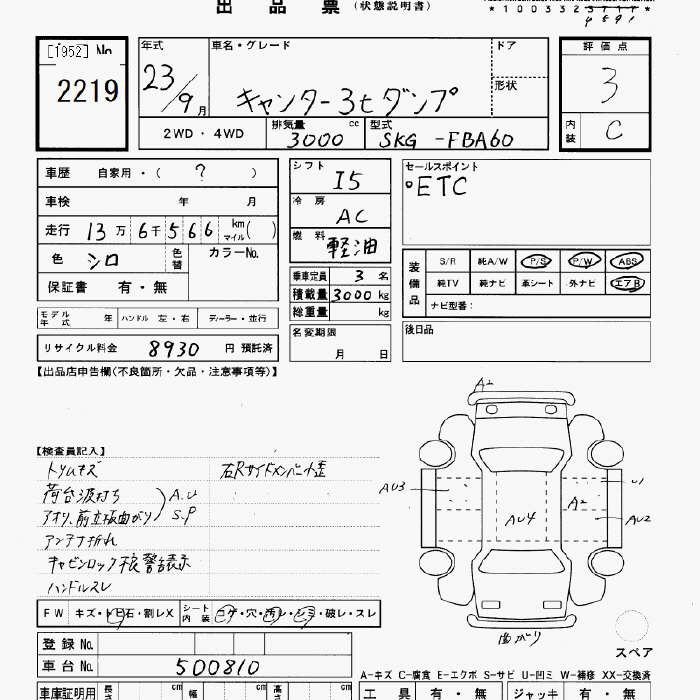 出 品 票 (状態説明書)
*100332
[1952] No
2219
年式
23/9月
車名・グレード
キャンター3tダンプ
ドア
形状
評価点
3
内装
C
2WD ・ 4WD
排気量 cc
3000
型式
SKG -FBA60
車歴 自家用・( ? )
車検 年 月
走行 13万 6千 5 6 6 km マイル( )
色 シロ 色替 カラーNo.
保証書 有・無
モデル年式 年 ハンドル 左・右 ディーラー・並行
リサイクル料金 8930 円 預託済
シフト I5
冷房 AC
燃料 軽油
乗車定員 3 名
積載量 3000 kg
総重量 kg
名変期限
月 日
セールスポイント
°ETC
装備品
S/R 純A/W P/S P/W ABS
純TV 純ナビ 革シート 外ナビ エアB
ナビ型番：
後日品
【出品店申告欄(不良箇所・欠品・注意事項等)】
【検査員記入】
トリムキズ
右Rサイドメンバー小歪
荷台波打ち
アオリ、前立板曲がり
A.U
S.P
アンテナ折れ
キャビンロック不良 警告表示
ハンドルスレ
FW キズ・トビ石・割レX
シート内装 コゲ・穴・汚レ・シミ・破レ・スレ
登録 No.
車台 No. 500810
車庫証明用 長さ cm 幅 cm 高さ cm
A2
AU3
AU4
A2
U1
AU2
曲がり
スペア
A-キズ C-腐食 E-エクボ S-サビ U-凹ミ W-補修 XX-交換済
工具 有・無 ジャッキ 有・無